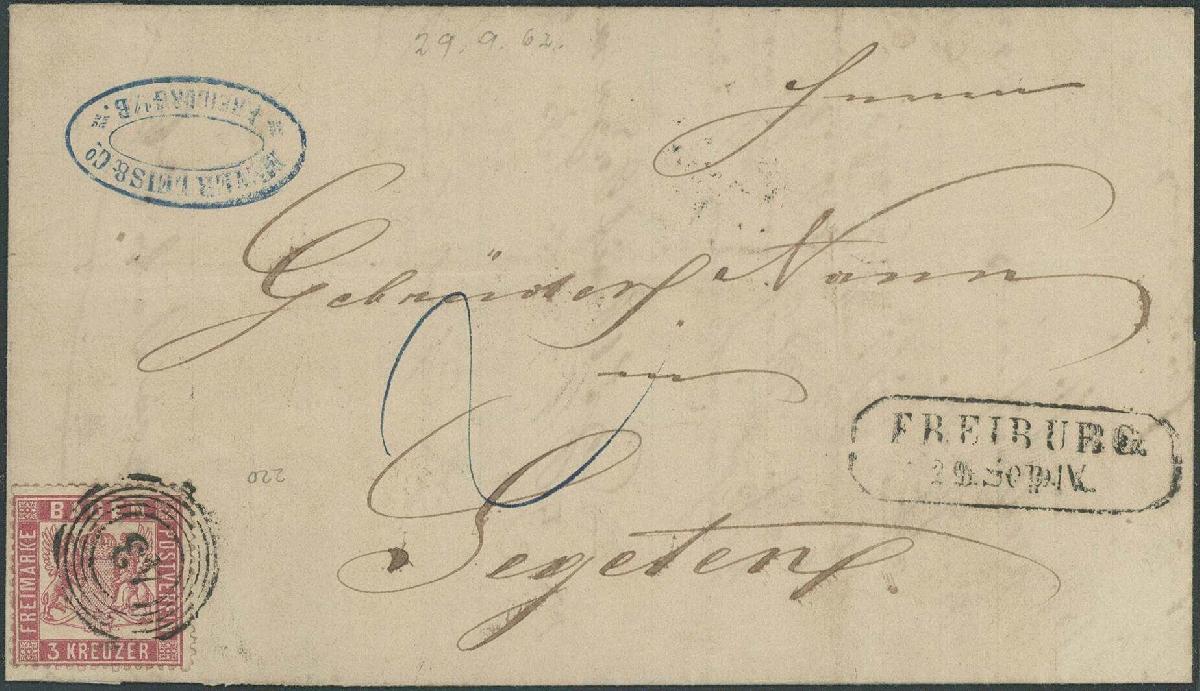 29. 9. 62.
MEYER LEIS & Co.
* FREIBURG i/B. *
Herrn
Gebrüder Nann
in
Segeten.
FREIBURG
220
BADEN
FREIMARKE
POSTVEREIN
3 KREUZER